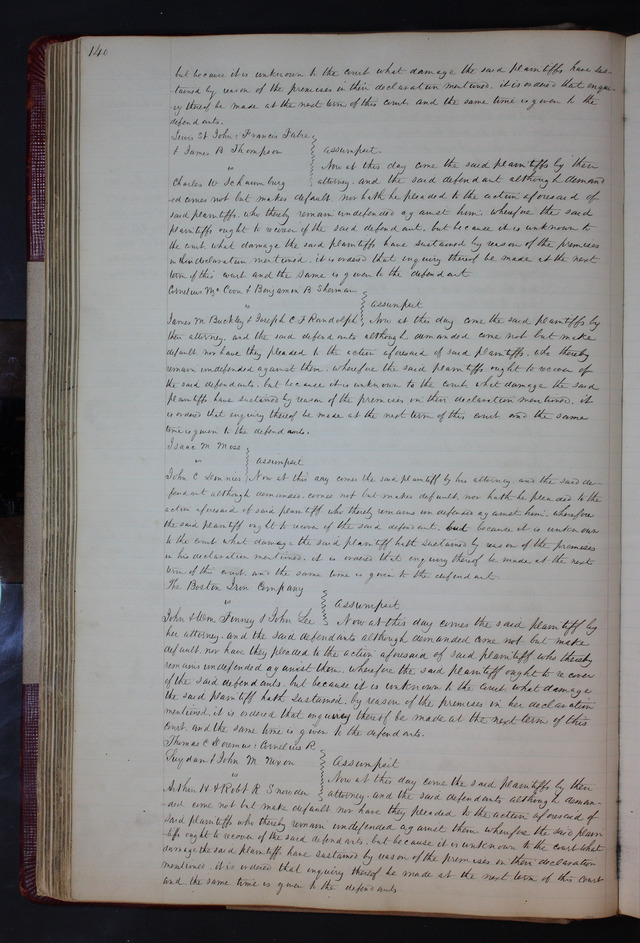 140
but because it is unknown to the court what damage the said plaintiffs have sus-
tained by reason of the premises in their declaration mentioned. it is ordered that enqui-
ry thereof be made at the next term of this court and the same time is given to the
defendants.
Lewis St John & Francis Fabre
& James B Thompson assumpsit.
" Now at this day come the said plaintiffs by their
Charles W Schaumburg attorney. and the said defendant although demand
ed comes not but makes default. nor hath he pleaded to the action aforesaid of
said plaintiffs. who thereby remain undefended against him. wherefore the said
plaintiffs ought to recover of the said defendant. but because it is unknown to
the court what damage the said plaintiffs have sustained by reason of the premises
in their declaration mentioned. it is ordered that enquiry thereof be made at the next
term of this court and the same is given to the defendant
Cornelius Mc Coon & Benjamin B Sherman
" assumpsit
James M Buckley & Joseph C F Randolph Now at this day come the said plaintiffs by
their attorney. and the said defendants although demanded come not but make
default. nor have they pleaded to the action aforesaid of said plaintiffs. who thereby
remain undefended against them. wherefore the said plaintiffs. ought to recover of
the said defendants. but because it is unknown to the court what damage the said
plaintiffs have sustained by reason of the premises in their declaration mentioned. it
is ordered that enquiry thereof be made at the next term of this court and the same
time is given to the defendants.
Isaac M Moss
" assumpsit
John C Now at this day comes the said plaintiff by his attorney. and the said de-
fendant although demanded. comes not but makes default. nor hath he pleaded to the
action aforesaid of said plaintiff who thereby remains undefended against him. wherefore
the said plaintiff ought to recover of the said defendant. but because it is unknown
to the court what damage the said plaintiff hath sustained by reason of the premises
in his declaration mentioned. it is ordered that enquiry thereof be made at the next
term of this court. and the same time is given to the defendant.
The Boston Iron Company
" assumpsit
John & Wm Finney & John Lee Now at this day comes the said plaintiff by
her attorney. and the said defendants although demanded come not but make
default. nor have they pleaded to the action aforesaid of said plaintiff who thereby
remains undefended against them. wherefore the said plaintiff ought to recover
of the said defendants. but because it is unknown to the court what damage
the said plaintiff hath sustained. by reason of the premises in her declaration
mentioned. it is ordered that enquiry thereof be made at the next term of this
court. and the same time is given to the defendants.
Thomas C Doremus & Cornelius R
Suydam & John M Nixon Assumpsit
" Now at this day come the said plaintiffs by their
Arthur H & Robt R Snowden attorney. and the said defendants although deman-
ded come not but make default nor have they pleaded to the action aforesaid of
said plaintiffs who thereby remain undefended against them wherefore the said plain
tiffs ought to recover of the said defendants. but because it is unknown to the court what
damage the said plaintiffs have sustained by reason of the premises in their declaration
mentioned. it is ordered that enquiry thereof be made at the next term of this court
and the same time is given to the defendants